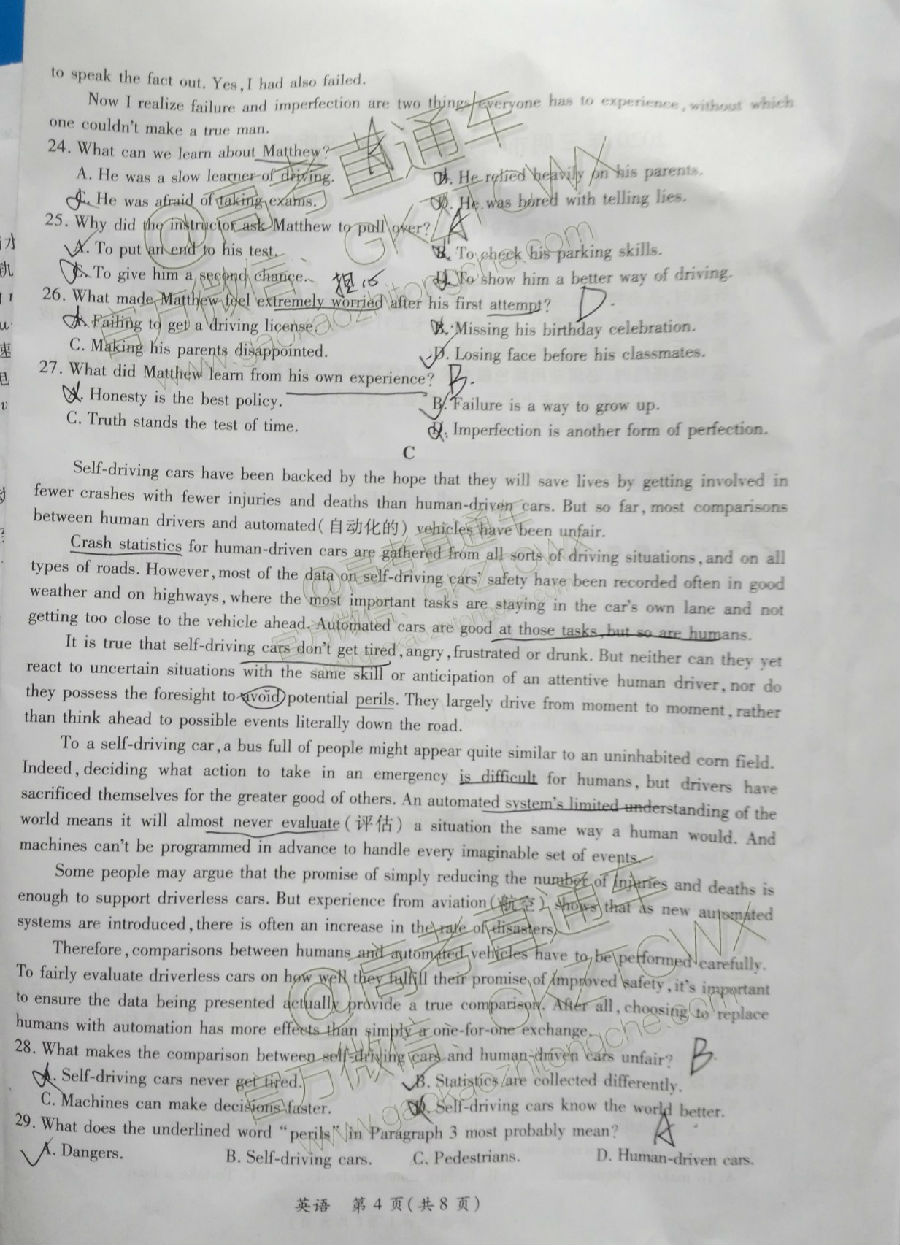 to speak the fact out. Yes, I had also failed.
Now I realize failure and imperfection are two things everyone has to experience, without which
one couldn't make a true man.
24. What can we learn about Matthew?
A. He was a slow learner of driving. B. He relied heavily on his parents.
C. He was afraid of taking exams. D. He was bored with telling lies.
25. Why did the instructor ask Matthew to pull over? A
A. To put an end to his test. B. To check his parking skills.
C. To give him a second chance. D. To show him a better way of driving.
担心
26. What made Matthew feel extremely worried after his first attempt? D.
A. Failing to get a driving license. B. Missing his birthday celebration.
C. Making his parents disappointed. D. Losing face before his classmates.
27. What did Matthew learn from his own experience? B.
A. Honesty is the best policy. B. Failure is a way to grow up.
C. Truth stands the test of time. D. Imperfection is another form of perfection.
C
Self-driving cars have been backed by the hope that they will save lives by getting involved in
fewer crashes with fewer injuries and deaths than human-driven cars. But so far, most comparisons
between human drivers and automated(自动化的) vehicles have been unfair.
Crash statistics for human-driven cars are gathered from all sorts of driving situations, and on all
types of roads. However, most of the data on self-driving cars' safety have been recorded often in good
weather and on highways, where the most important tasks are staying in the car's own lane and not
getting too close to the vehicle ahead. Automated cars are good at those tasks, but so are humans.
It is true that self-driving cars don't get tired, angry, frustrated or drunk. But neither can they yet
react to uncertain situations with the same skill or anticipation of an attentive human driver, nor do
they possess the foresight to avoid potential perils. They largely drive from moment to moment, rather
than think ahead to possible events literally down the road.
To a self-driving car, a bus full of people might appear quite similar to an uninhabited corn field.
Indeed, deciding what action to take in an emergency is difficult for humans, but drivers have
sacrificed themselves for the greater good of others. An automated system's limited understanding of the
world means it will almost never evaluate(评估) a situation the same way a human would. And
machines can't be programmed in advance to handle every imaginable set of events.
Some people may argue that the promise of simply reducing the number of injuries and deaths is
enough to support driverless cars. But experience from aviation(航空) shows that as new automated
systems are introduced, there is often an increase in the rate of disasters.
Therefore, comparisons between humans and automated vehicles have to be performed carefully.
To fairly evaluate driverless cars on how well they fulfill their promise of improved safety, it's important
to ensure the data being presented actually provide a true comparison. After all, choosing to replace
humans with automation has more effects than simply a one-for-one exchange.
28. What makes the comparison between self-driving cars and human-driven cars unfair? B
A. Self-driving cars never get tired. B. Statistics are collected differently.
C. Machines can make decisions faster. D. Self-driving cars know the world better.
29. What does the underlined word "perils" in Paragraph 3 most probably mean? A
A. Dangers. B. Self-driving cars. C. Pedestrians. D. Human-driven cars.
英语 第4页(共8页)
@高考直通车
官方微信: GKZTCWX
www.gaokaozhitongche.com
@高考直通车
官方微信: GKZTCWX
www.gaokaozhitongche.com